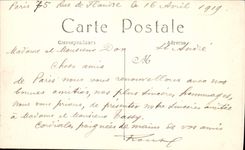 Paris 75 Rue de Flandre le 16 Avril 1919.
Carte Postale
Correspondance Adresse
Madame et Monsieur Don St André
Chers amis M
de Paris nous vous renouvellons avec nos
bonnes amitiés, nos plus sincères hommages,
Nous vous prions, de présenter notre sincère amitiés
à Madame et Monsieur Passy.
Cordiales poignées de mains de vos amis